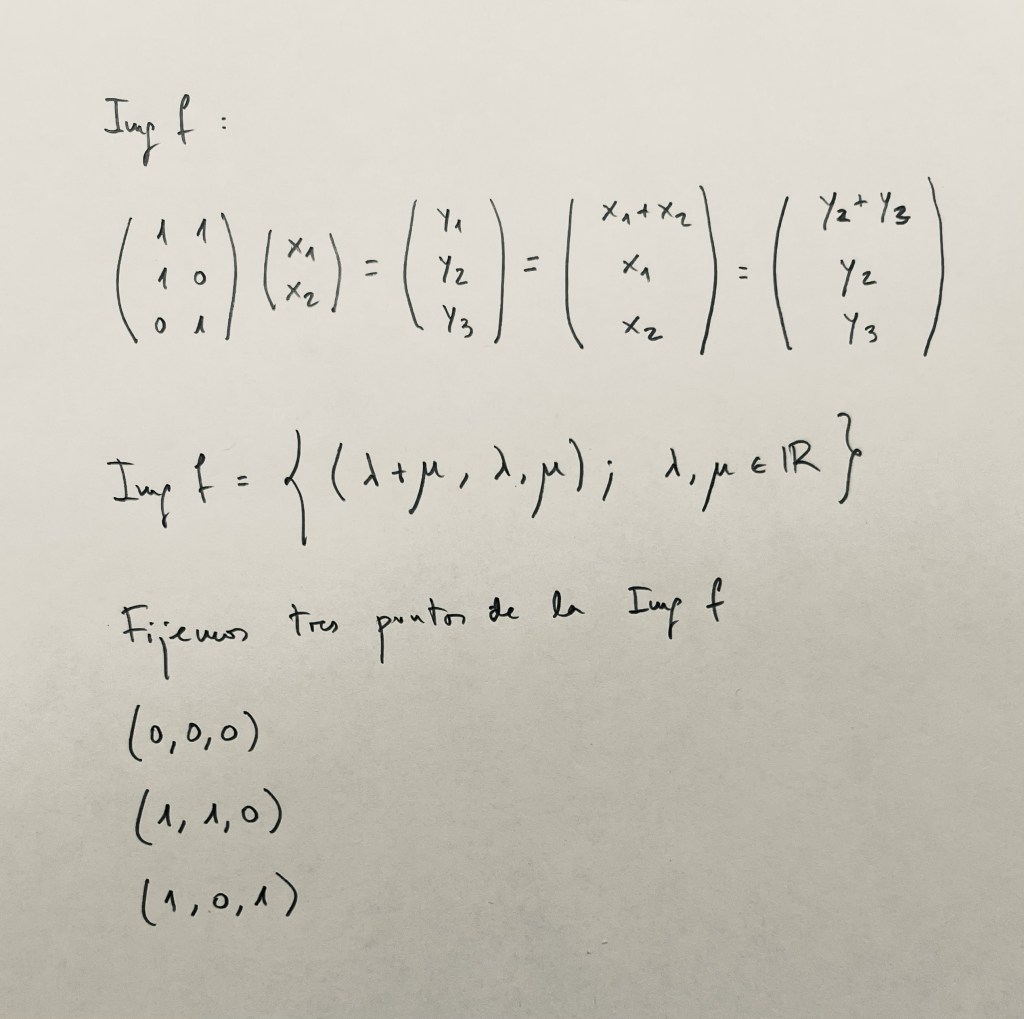 Img f :
( 1 1 ; 1 0 ; 0 1 ) ( x1 ; x2 ) = ( y1 ; y2 ; y3 ) = ( x1 + x2 ; x1 ; x2 ) = ( y2 + y3 ; y2 ; y3 )
Img f = { ( λ + μ , λ, μ ) ; λ, μ ∈ ℝ }
Fijemos tres puntos de la Img f
(0,0,0)
(1,1,0)
(1,0,1)